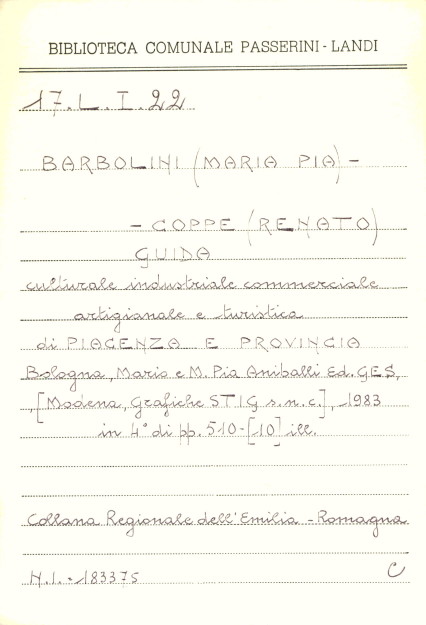 BIBLIOTECA COMUNALE PASSERINI - LANDI
17. L. I. 22
BARBOLINI (MARIA PIA) -
- COPPE (RENATO)
GUIDA
culturale industriale commerciale
artigianale e turistica
di PIACENZA E PROVINCIA
Bologna, Mario e M. Pia Aniballi Ed. GES,
, [Modena, Grafiche STIG s.n.c.], 1983
in 4° di pp. 510-[10] ill.
Collana Regionale dell'Emilia - Romagna
N.I. - 183375 C